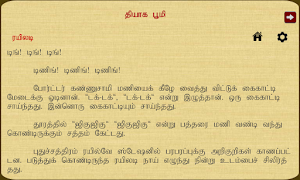 தியாக பூமி
ரயிலடி
டிங்! டிங்! டிங்!
டிணிங்! டிணிங்! டிணிங்!
போர்ட்டர் கண்ணுசாமி மணியைக் கீழே வைத்து விட்டுக் கைகாட்டி
மேடைக்கு ஓடினான். "டக்-டக்", "டக்-டக்" என்று இழுத்தான். ஒரு கைகாட்டி
சாய்ந்தது. இன்னொரு கைகாட்டியும் சாய்ந்தது.
தூரத்தில் "ஜிகுஜிகு" "ஜிகுஜிகு" என்று பத்தரை மணி வண்டி வந்து
கொண்டிருக்கும் சத்தம் கேட்டது.
புதுச்சத்திரம் ரயில்வே ஸ்டேஷனில் பரபரப்புக்கு அறிகுறிகள் காணப்பட்
டன. படுத்துக் கொண்டிருந்த ரயிலடி நாய் எழுந்து நின்று உடம்பைச் சிலிர்த்
தது.